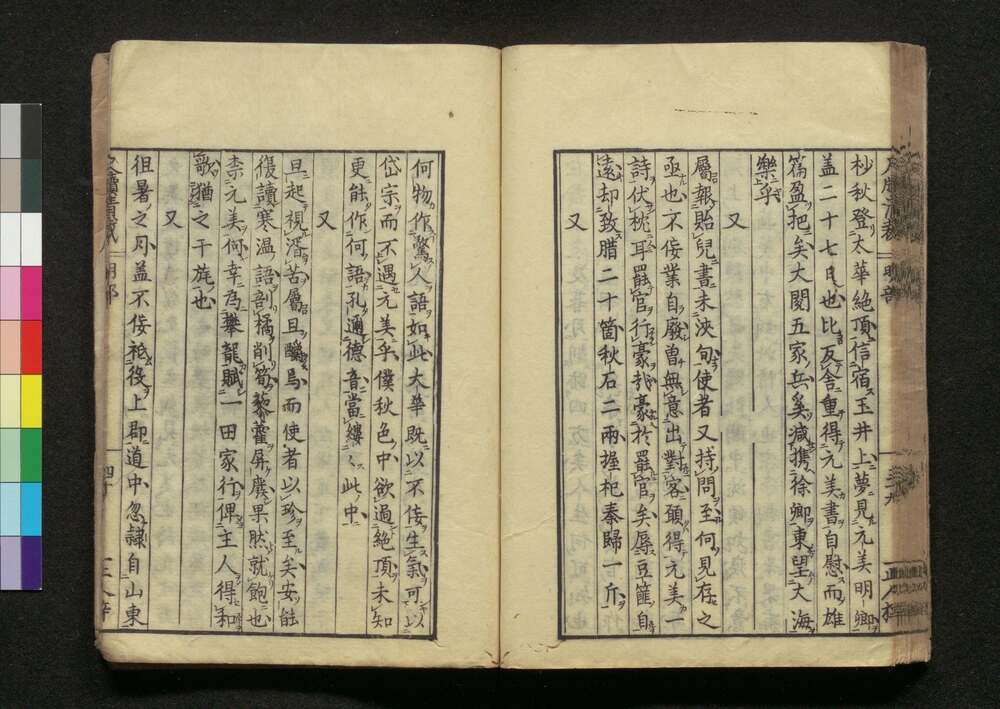 杪秋登太華絶頂信宿玉井上夢見元美明卿
盖二十七日也比反舎重得元美書自慰而雄
篇盈把矣大閲五家兵奚減携徐卿東望大海
樂乎
又
屬報貽兒書未浹旬使者又持問至何見存之
亟也不佞業自廢曽無意出對客頭得元美一
詩伏枕耳罷官行豪哉豪於罷官矣辱豆䉛自
遠却致腊二十箇秋石二兩握杞奉歸一斤
又
何物作驚人語如此大華既以不佞生氣可以
岱宗而不遇元美乎僕秋色中欲過絶頂未知
更能作何語孔邇德音當縷〻此中
又
旦起視湑苦屬且醼焉而使者以珍至矣安能
復讀寒温語剖橘削筍藜藿屏廢果然就飽也
柰元美何幸為攀龍賦一田家行俾主人得和
歌猶之干旄也
又
徂暑之月盖不佞祗役上郡道中忽隷自山東
明部
四十